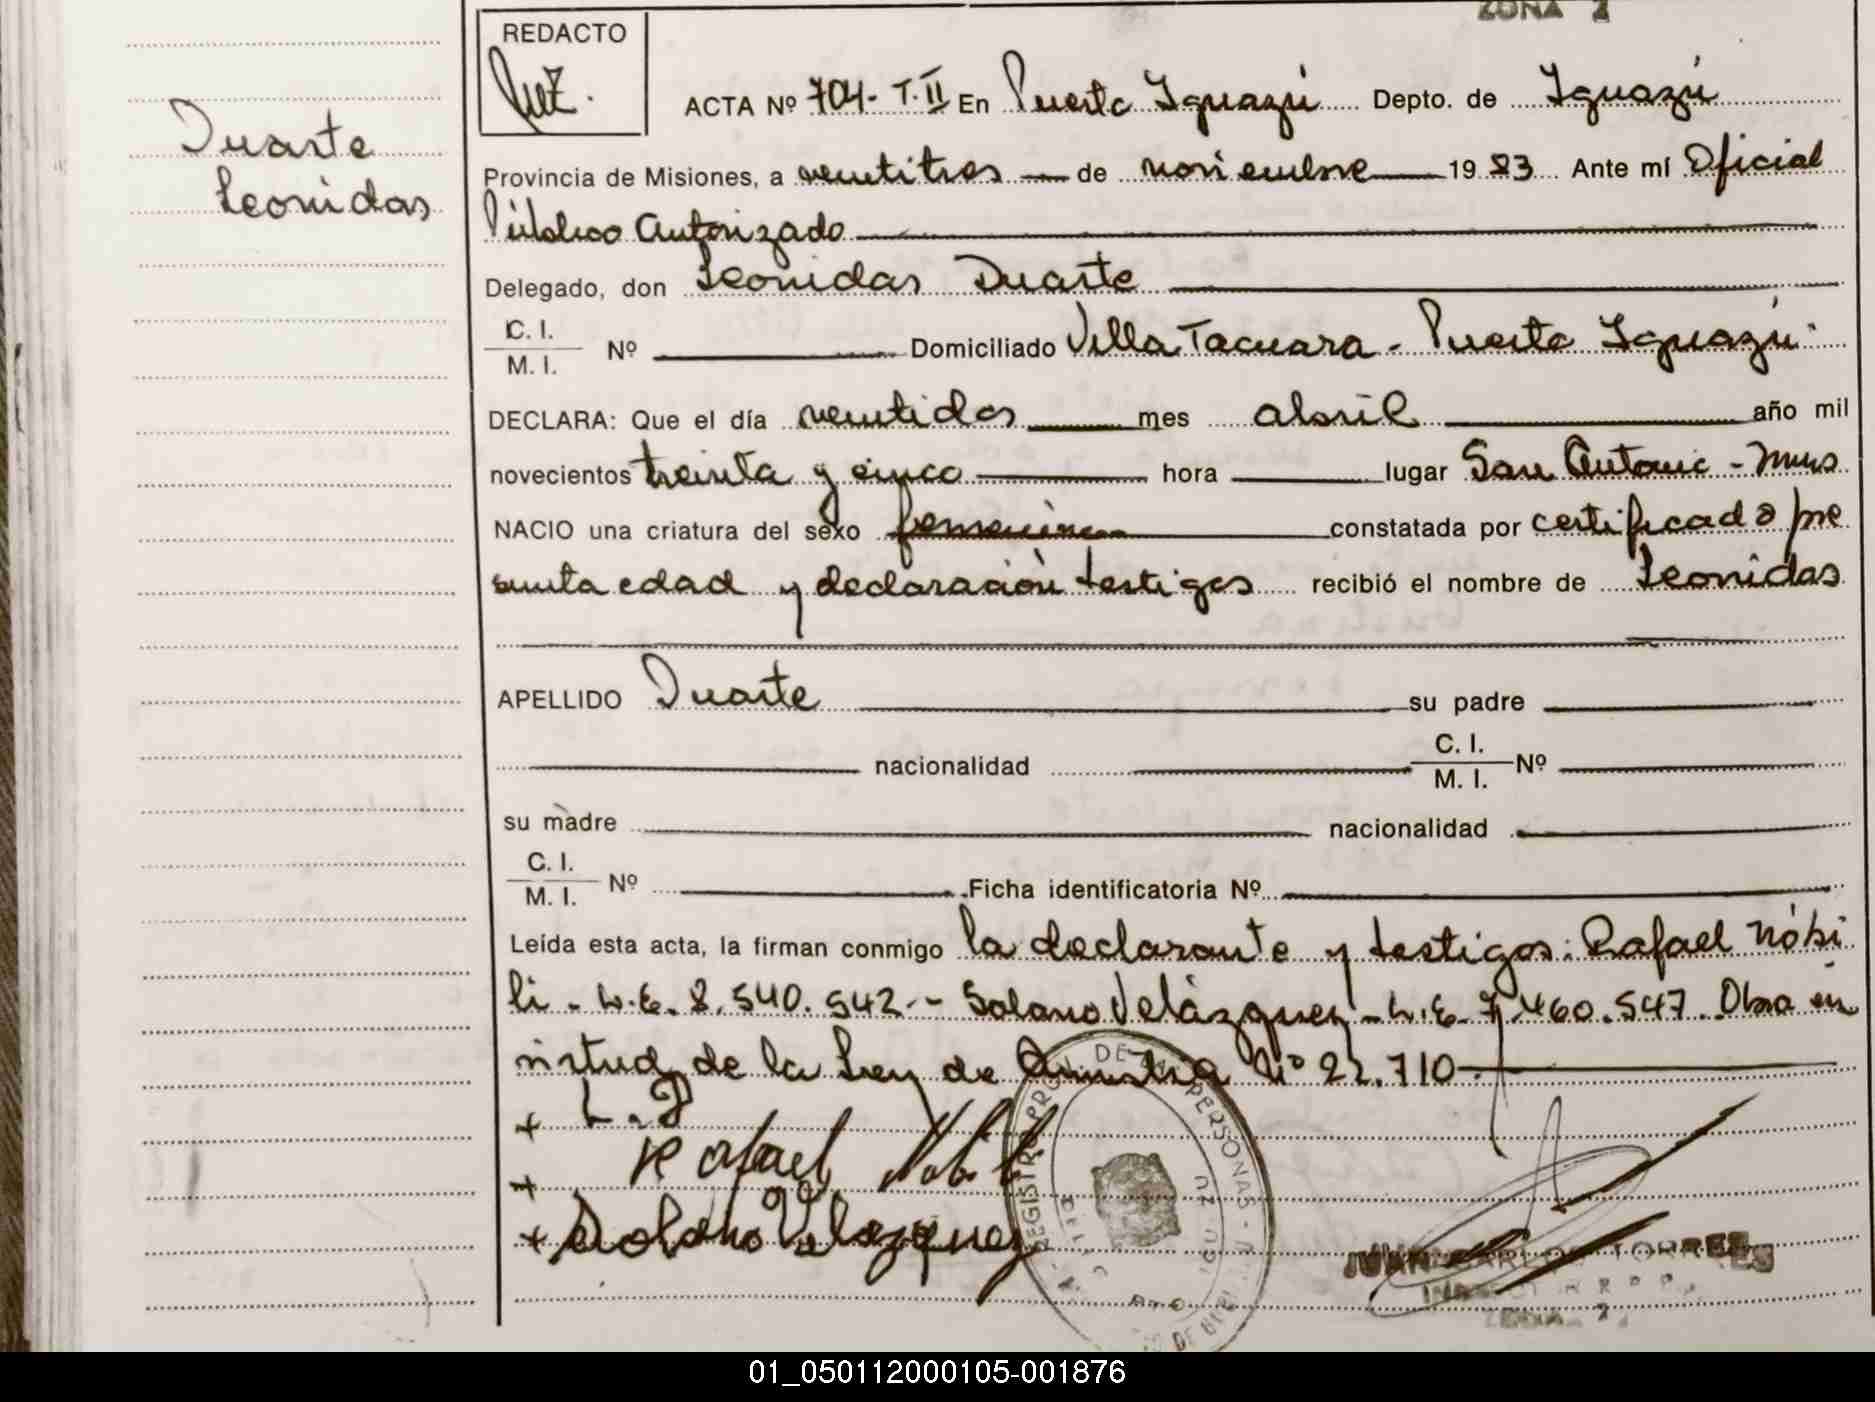 ZONA 2
REDACTO
ACTA Nº 704- T.II En Puerto Iguazú Depto. de Iguazú
Duarte
Leonidas
Provincia de Misiones, a ventitres de noviembre 1983 Ante mí Oficial
Público Autorizado
Delegado, don Leonidas Duarte
C. I.
M. I. Nº Domiciliado Villa Tacuara - Puerto Iguazú
DECLARA: Que el día ventidos mes abril año mil
novecientos treinta y cinco hora lugar San Antonio - Mnes
NACIO una criatura del sexo femenino constatada por certificado pre
sunta edad y declaración testigos recibió el nombre de Leonidas
APELLIDO Duarte su padre
nacionalidad C. I.
M. I. Nº
su madre nacionalidad
C. I.
M. I. Nº Ficha identificatoria Nº
Leída esta acta, la firman conmigo la declarante y testigos: Rafael Nóbi
li - L.E. 8.540.542 - Solano Velázquez - L.E. 7.460.547. Obra en
virtud de la Ley de Amnistía Nº 22.710
+ L.D
+ Rafael
+ Solano Velazquez
REGISTRO DE PERSONAS
JUAN CARLOS TORRES
ZONA 2
01_050112000105-001876